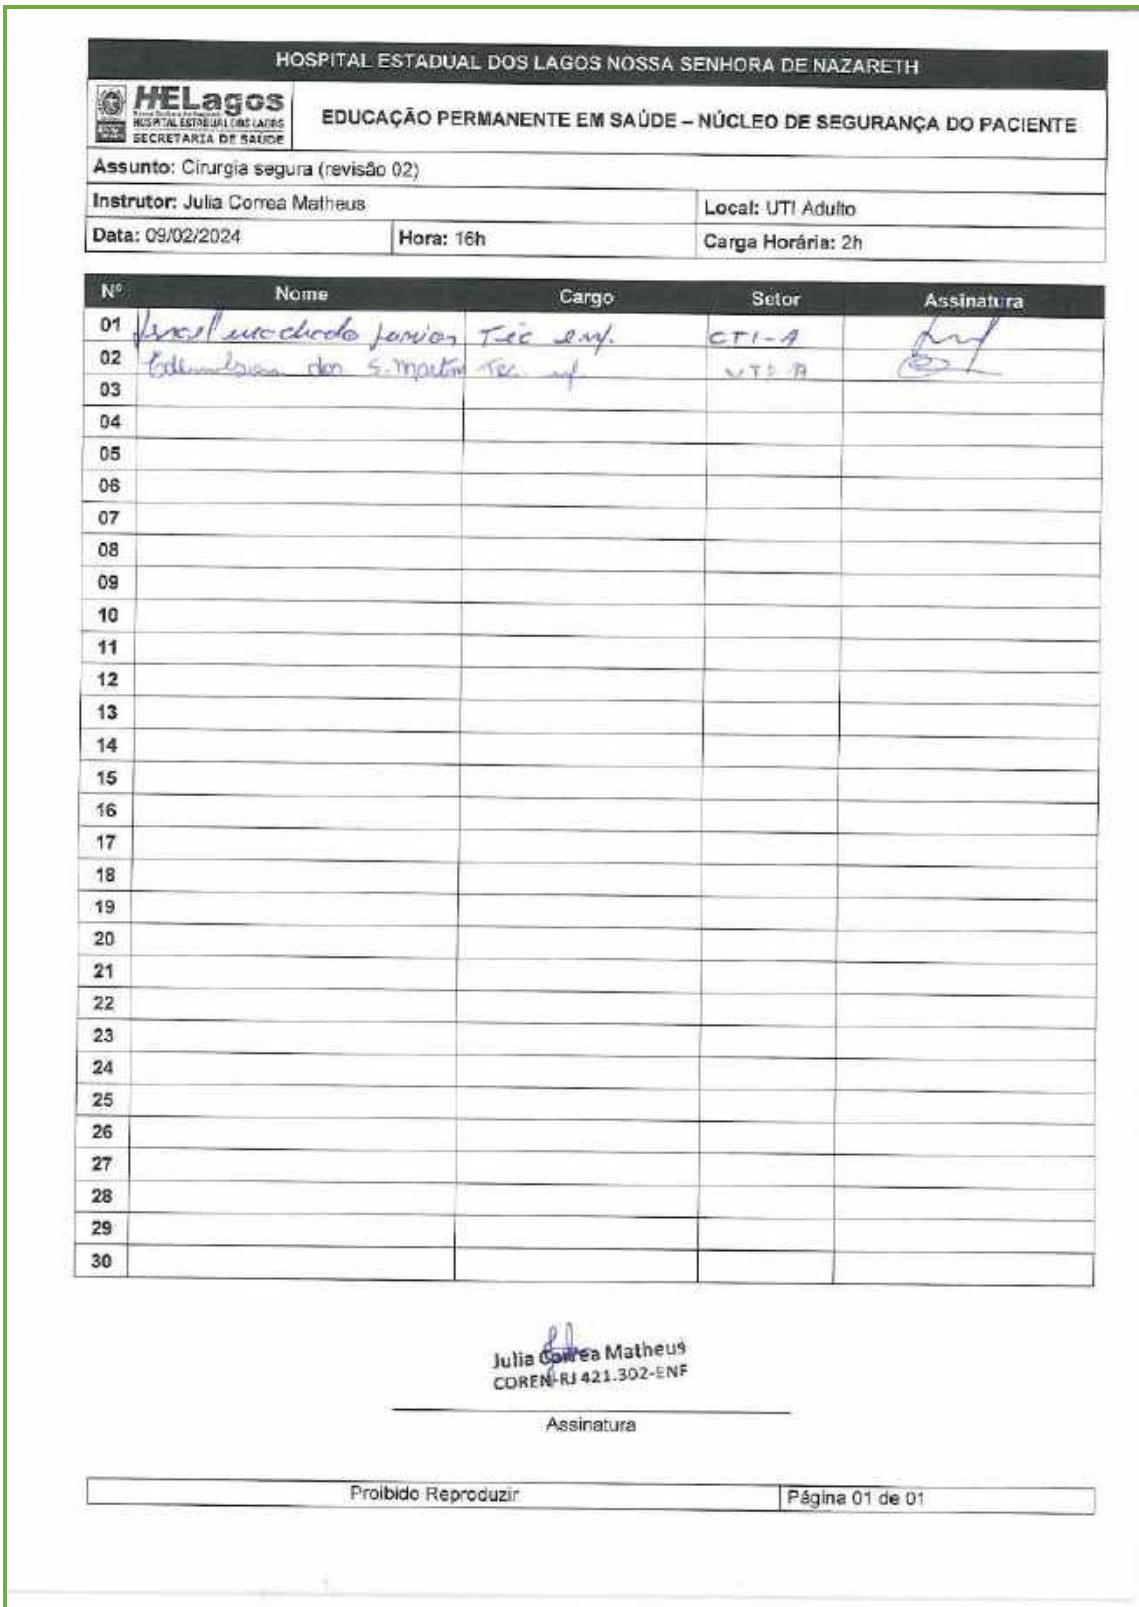 HOSPITAL ESTADUAL DOS LAGOS NOSSA SENHORA DE NAZARETH
HELagos
HOSPITAL ESTADUAL DOS LAGOS
SECRETARIA DE SAÚDE
EDUCAÇÃO PERMANENTE EM SAÚDE – NÚCLEO DE SEGURANÇA DO PACIENTE
Assunto: Cirurgia segura (revisão 02)
Instrutor: Julia Correa Matheus Local: UTI Adulto
Data: 09/02/2024 Hora: 16h Carga Horária: 2h
Nº Nome Cargo Setor Assinatura
01 machado Téc enf. CTI-A
02 dos S. Martins Tec enf UTI A
03
04
05
06
07
08
09
10
11
12
13
14
15
16
17
18
19
20
21
22
23
24
25
26
27
28
29
30
Julia Correa Matheus
COREN-RJ 421.302-ENF
Assinatura
Proibido Reproduzir Página 01 de 01